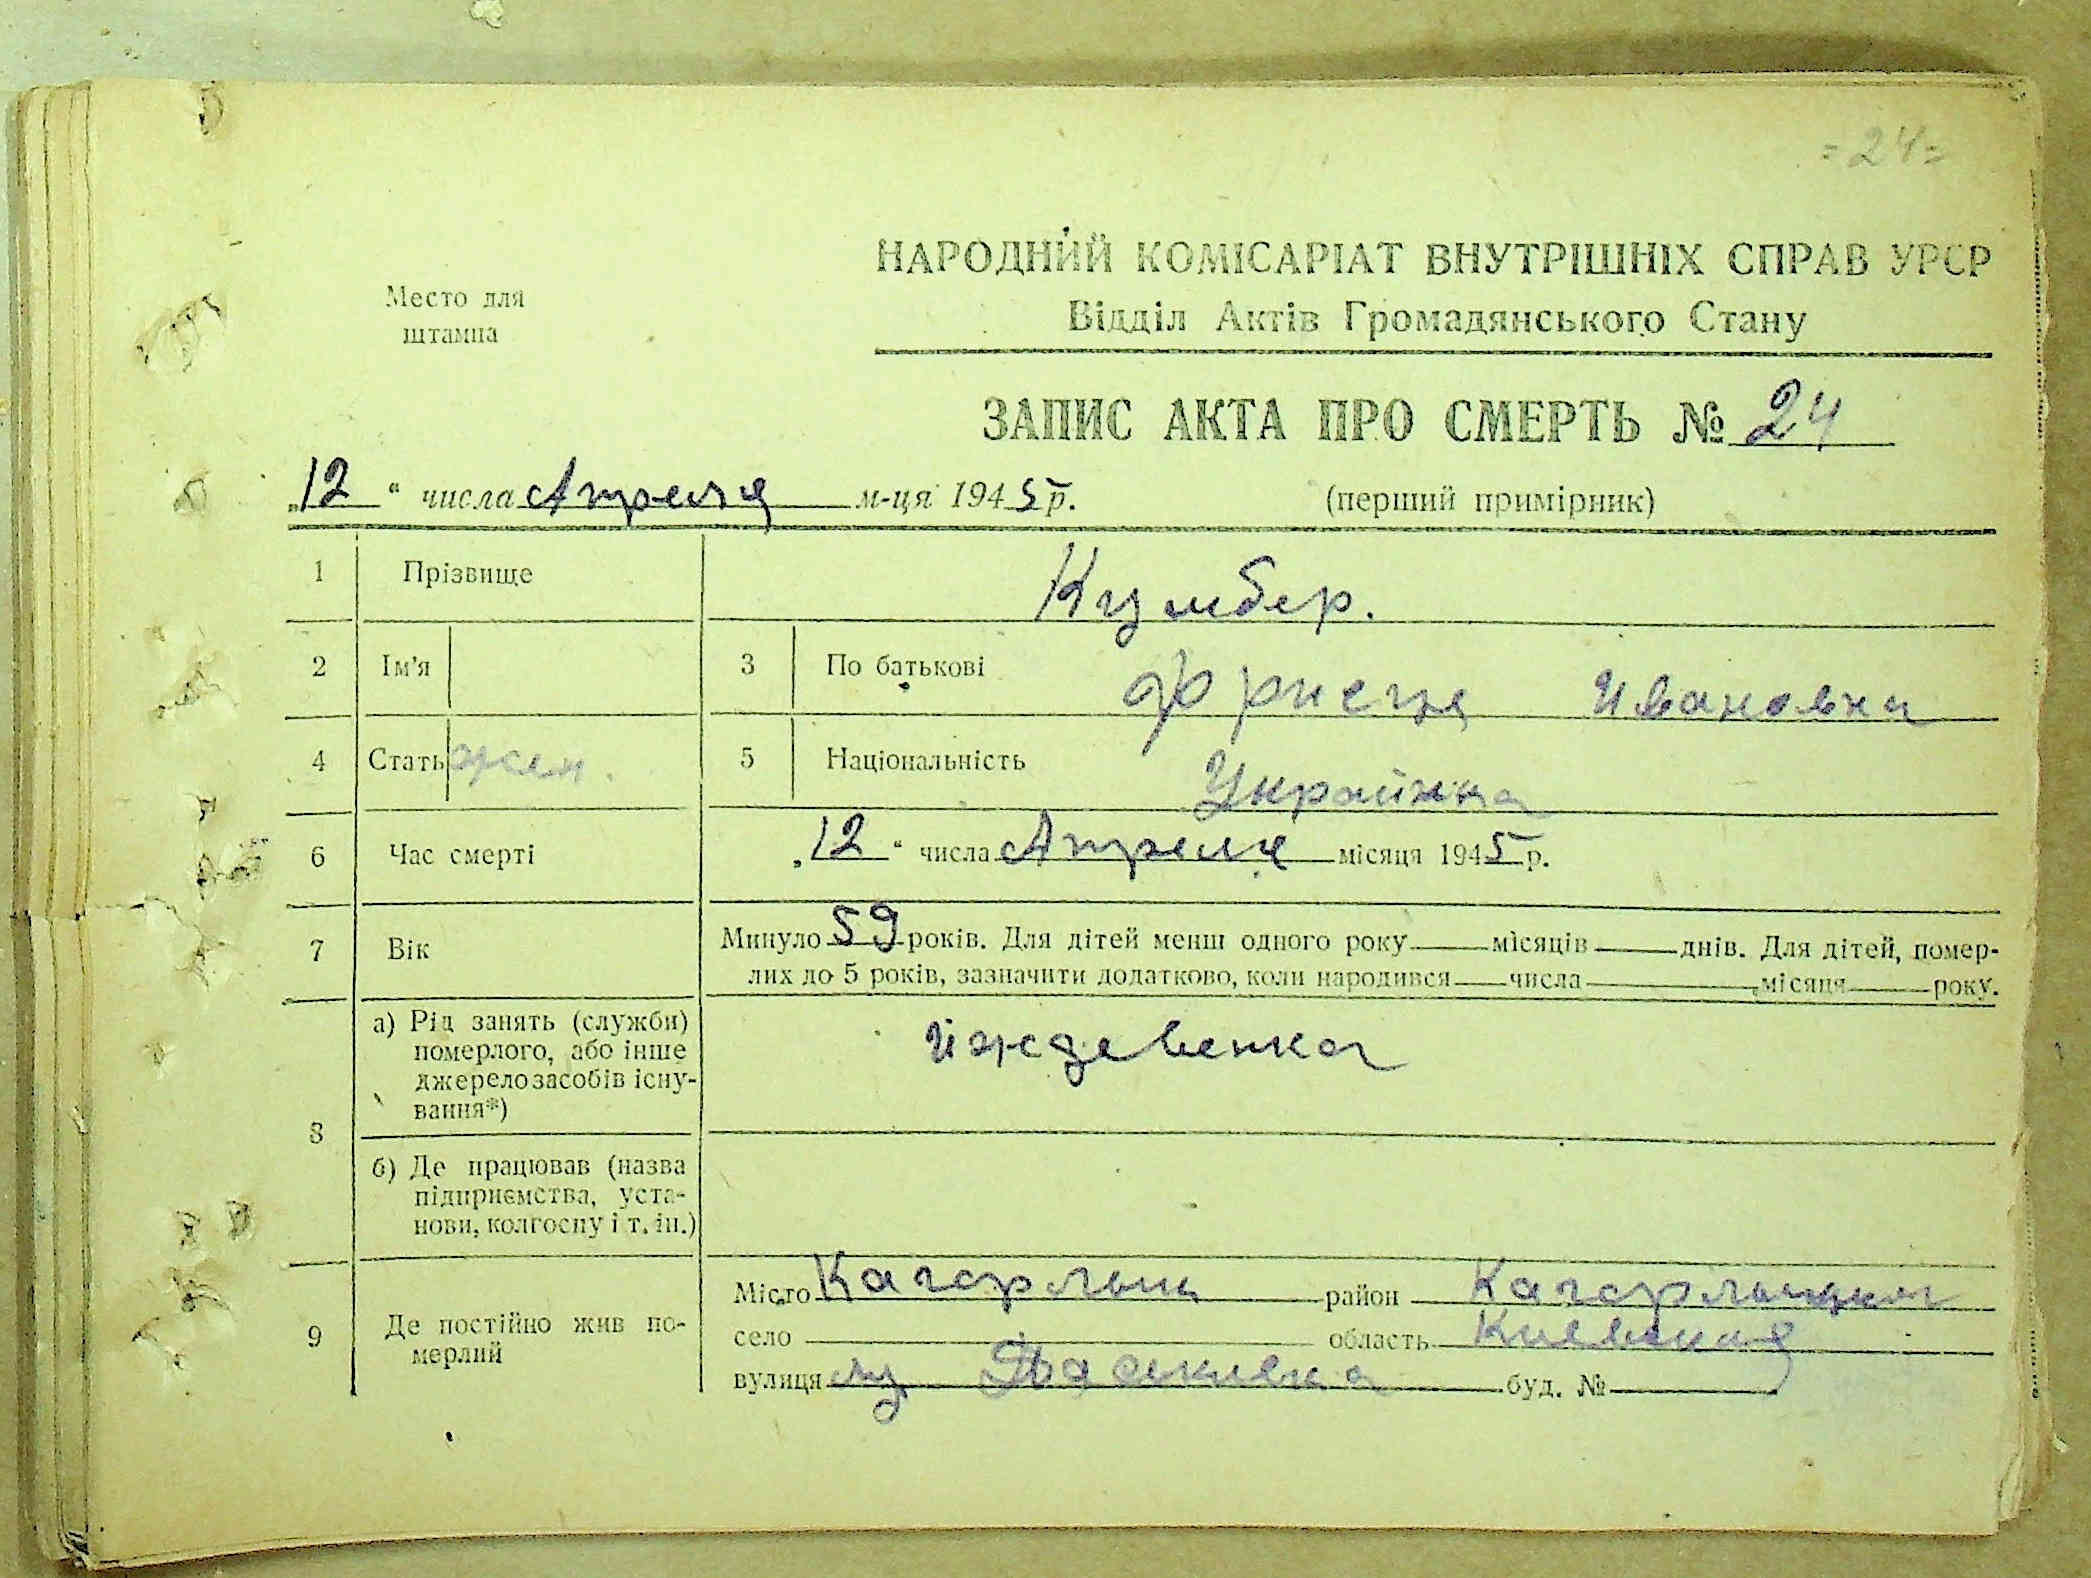 = 24 =
НАРОДНИЙ КОМІСАРІАТ ВНУТРІШНІХ СПРАВ УРСР
Место для
штампа
Відділ Актів Громадянського Стану
ЗАПИС АКТА ПРО СМЕРТЬ № 24
„12“ числа Апреля м-ця 1945 р.
(перший примірник)
1 Прізвище Кумбер.
2 Ім'я 3 По батькові Ивановна
4 Стать жен. 5 Національність Украинка
6 Час смерті „12“ числа Апреля місяця 1945 р.
7 Вік Минуло 59 років. Для дітей менш одного року місяців днів. Для дітей, помер-
лих до 5 років, зазначити додатково, коли народився числа місяця року.
8 а) Рід занять (служби)
померлого, або інше
джерело засобів існу-
вання*)
Иждевенка
б) Де працював (назва
підприємства, уста-
нови, колгоспу і т. ін.)
9 Де постійно жив по-
мерлий
Місто Кагарлык район Кагарлыцкого
село область Киевская
вулиця буд. №